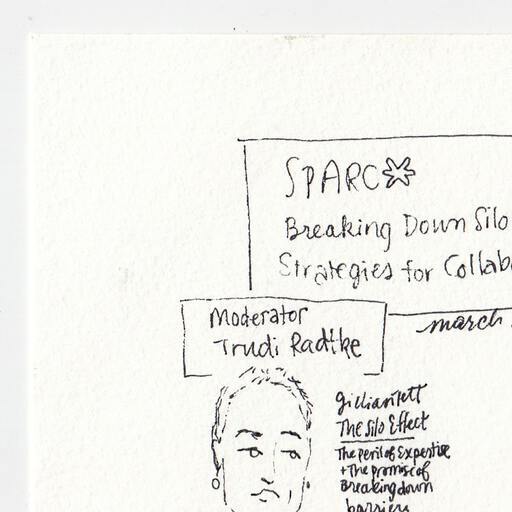 SPARC
Breaking Down Silo
Strategies for Collab
Moderator
Trudi Radtke
march
gillian tett
The Silo Effect
The peril of Expertise
+ The promise of
Breaking down
barriers